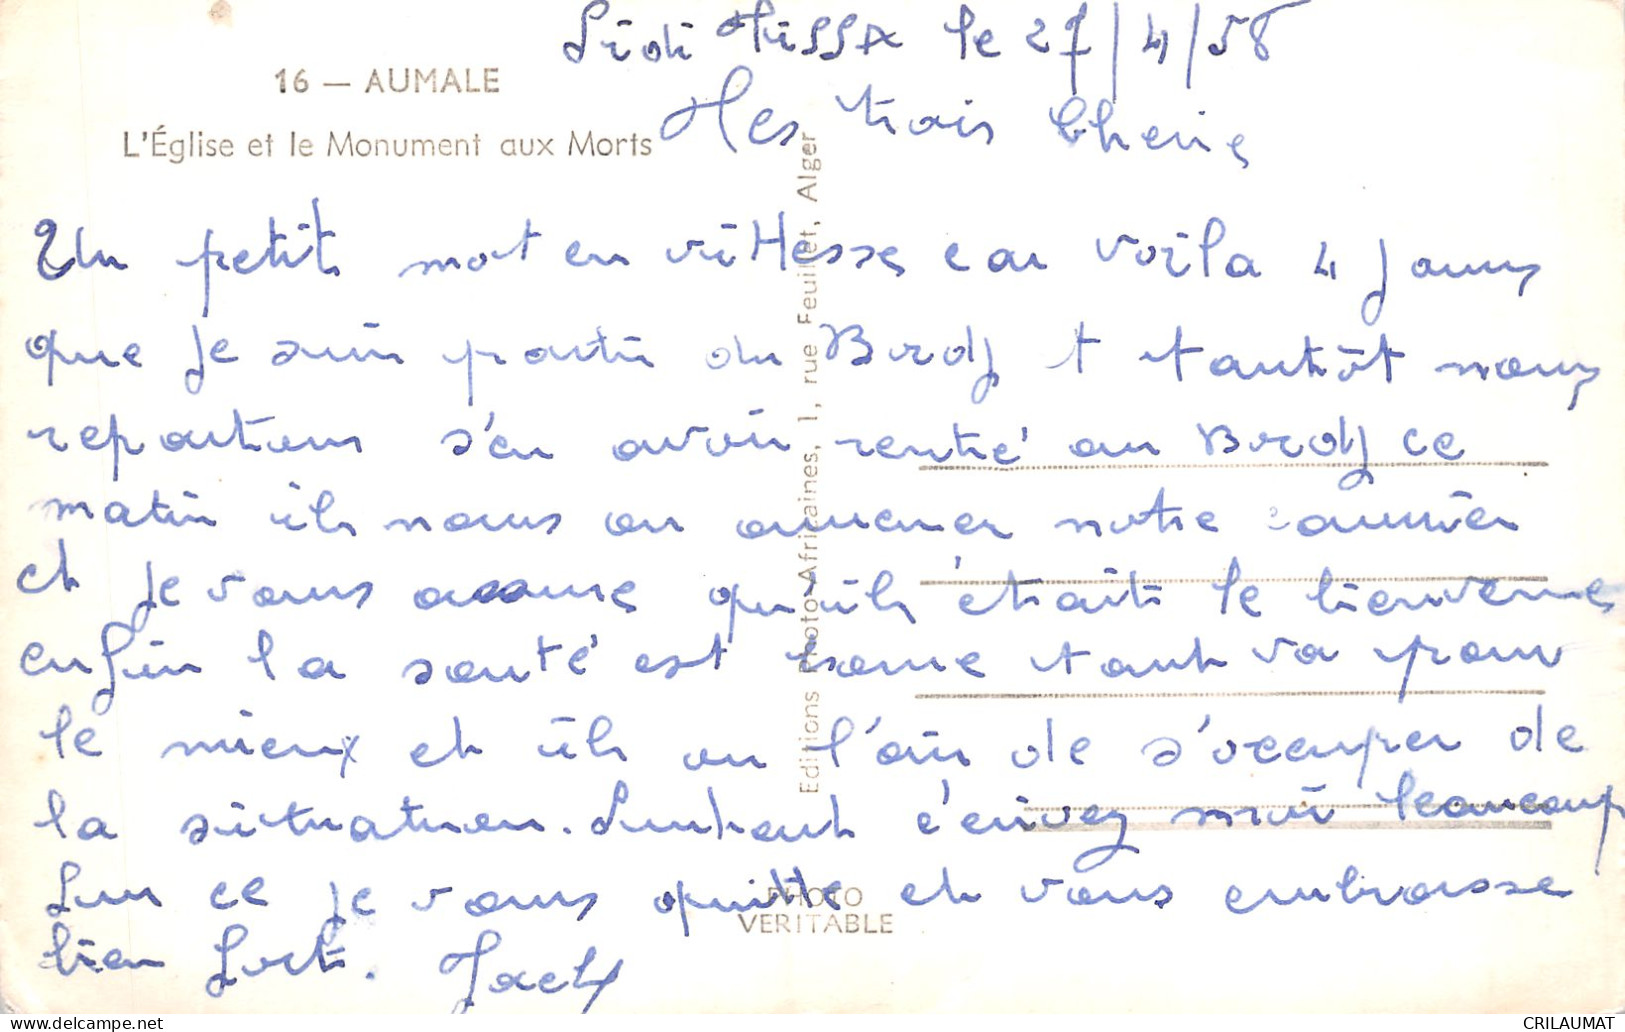 Sidi Aissa le 27/4/58
16 — AUMALE
L'Église et le Monument aux Morts
Mes trois Cheris
Un petit mot en vittesse car voila 4 jours
que je suis parti du Bordj t tantôt nous
repartons s'en avoir rentré au Bordj ce
matin ils nous on amener notre courrier
et je vous assure qu'ils étaits le bienvenue
enfin la santé est bonne tout va pour
le mieux et ils on l'air de s'occuper de
la situation. Surtout écrivez moi beaucoup
Sur ce je vous quitte et vous embrasse
bien fort. Jacky
Editions Photo-Africaines, 1, rue Feuillet, Alger
PHOTO
VERITABLE
CRILAUMAT